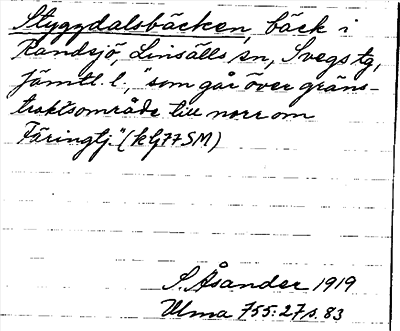 Styggdalsbäcken, bäck i
Randsjö, Linsälls sn, Svegs tg,
Jämtl. l., "som går över gräns-
traktsområde till norr om
Färingtj." (klj77SM)
S. Åsander 1919
Ulma 755:27 s. 83